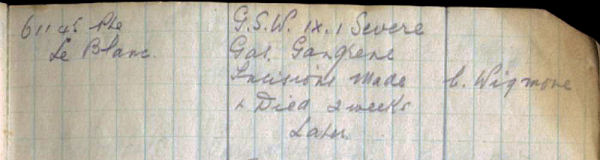 G.S.W. IX.1 Severe
Le Blanc. Gas. Gangrene
Incisions Made b. Wigmore
+ Died 2 weeks
Later